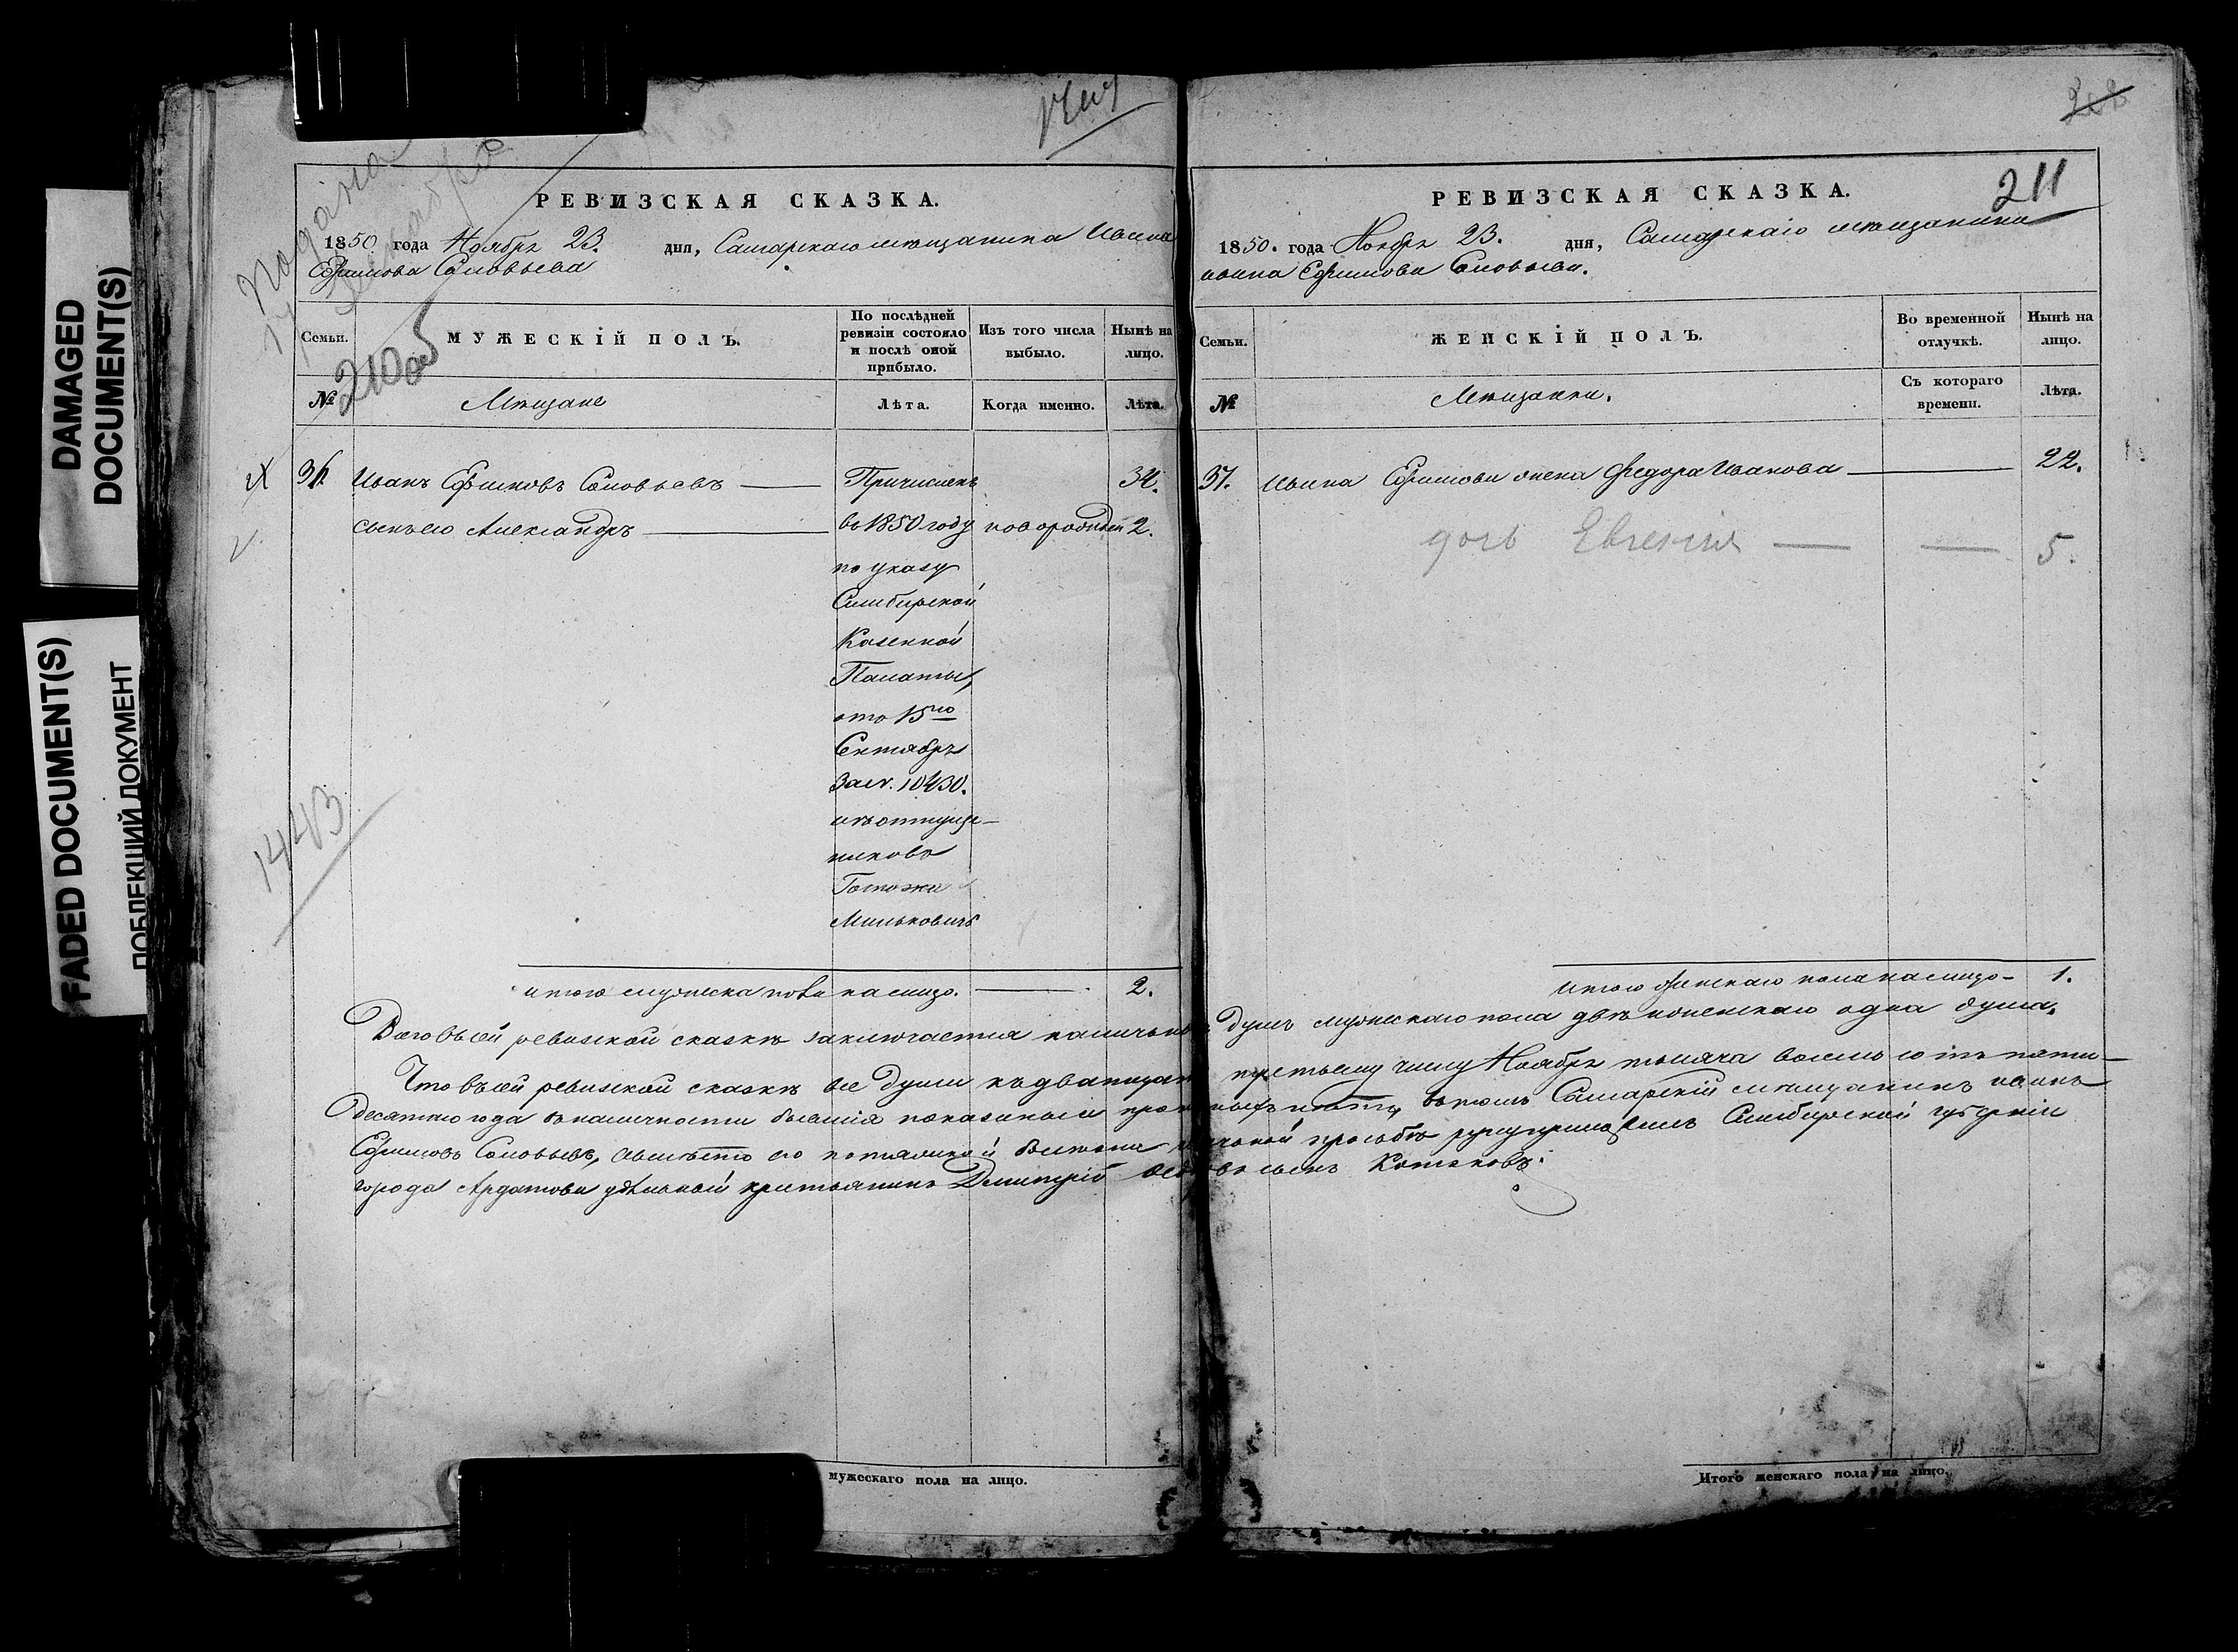 DAMAGED
DOCUMENT(S)
FADED DOCUMENT(S)
ПОБЛЕКШИЙ ДОКУМЕНТ
Подана
17 Декабря
210 об
1443
РЕВИЗСКАЯ СКАЗКА.
1850 года Ноября 23. дня, Самарскаго мѣщанина Ивана
Ефимова Соловьева
Семьи.
МУЖЕСКІЙ ПОЛЪ.
По послѣдней ревизіи состояло и послѣ оной прибыло.
Изъ того числа выбыло.
Нынѣ на лицо.
№
Мѣщане
Лѣта.
Когда именно.
Лѣта.
Иванъ Ефимовъ Соловьевъ — Причисленъ 34.
сынъ его Александръ — въ 1850 году новорожден 2.
по указу
Симбирской
Казенной
Палаты,
отъ 15го
Сентября
за № 10430.
изъ отпуще-
никовъ
Госпожи
Мильковичъ
итого мужеска пола на лицо. — 2.
мужескаго пола на лицо.
211
РЕВИЗСКАЯ СКАЗКА.
1850. года Ноября 23. дня, Самарскаго мѣщанина
Ивана Ефимова Соловьева.
Семьи.
ЖЕНСКІЙ ПОЛЪ.
Во временной отлучкѣ.
Нынѣ на лицо.
№
Мѣщанки.
Съ котораго времени.
Лѣта.
37. Ивана Ефимова жена Федора Иванова — 22.
дочь — — 5.
Итого женскаго пола на лицо – 1.
Въ сей ревизской сказкѣ заключается наличныхъ душъ мужескаго пола двѣ и женскаго одна душа.
Что въ сей ревизской сказкѣ все души къ двадцать третьему числу Ноября тысяча восемь сотъ пяти-
десятаго года въ наличности бывшія показаны и въ томъ Самарскій мѣщанинъ Иванъ
Ефимовъ Соловьевъ, а вмѣсто его личной прозьбѣ руку приложилъ Симбирской губерніи
города Ардатова удѣльный крестьянинъ Дмитрій сынъ
Итого женскаго пола на лицо.